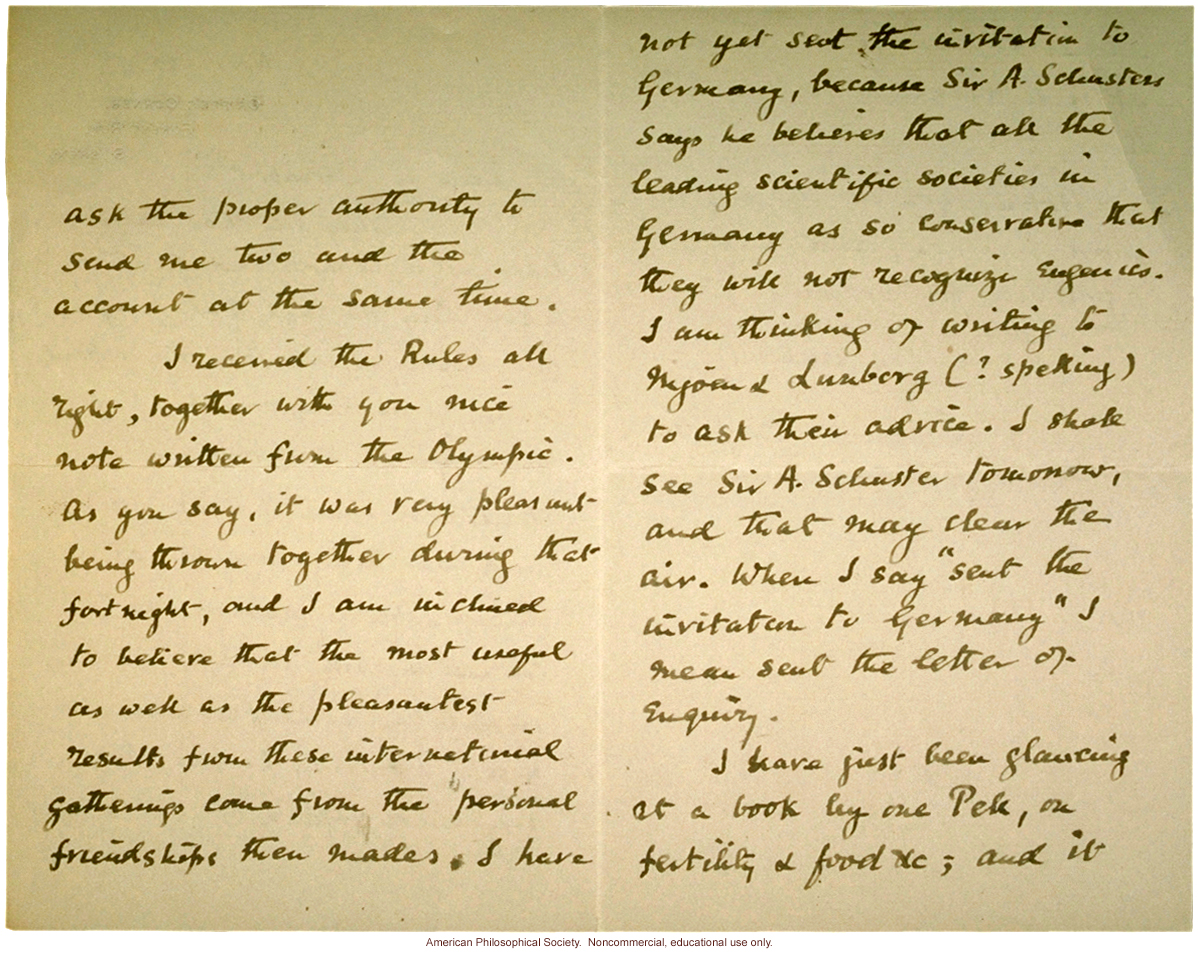 ask the proper authority to
send me two and the
account at the same time.
I received the Rules all
right, together with you nice
note written from the Olympic.
As you say, it was very pleasant
being thrown together during that
fortnight, and I am inclined
to believe that the most useful
as well as the pleasantest
results from these international
gatherings come from the personal
friendships then made. I have
not yet sent the invitation to
Germany, because Sir A. Schusters
says he believes that all the
leading scientific societies in
Germany as so conservative that
they will not recognize Eugenics.
I am thinking of writing to
Mjöen & Lunborg (? spelling)
to ask their advice. I shall
see Sir A. Schuster tomorrow,
and that may clear the
air. When I say "sent the
invitation to Germany" I
mean sent the letter of
Enquiry.
I have just been glancing
at a book by one Pell, on
fertility & food &c; and it
American Philosophical Society. Noncommercial, educational use only.